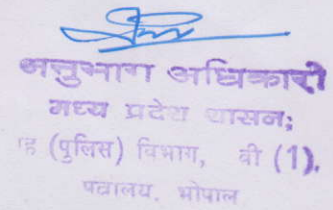 अनुभाग अधिकारी
मध्य प्रदेश शासन;
ह (पुलिस) विभाग, बी (1),
मंत्रालय, भोपाल